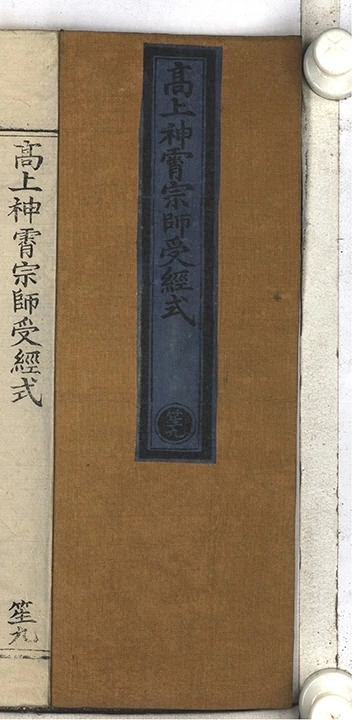 高上神霄宗師受經式
笙九
高上神霄宗師受經式
笙九